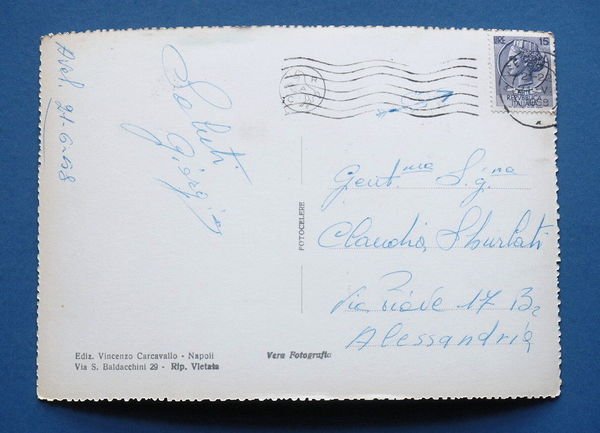 Avel. 21-6-68
Saluti
Giorgio
LIRE 15
REPVBBLICA
ITALIANA
FOTOCELERE
Gent.ma S.g.na
Claudia Sburlati
Via Piave 17 B2
Alessandria
Ediz. Vincenzo Carcavallo - Napoli
Via S. Baldacchini 29 - Rip. Vietata
Vera Fotografia